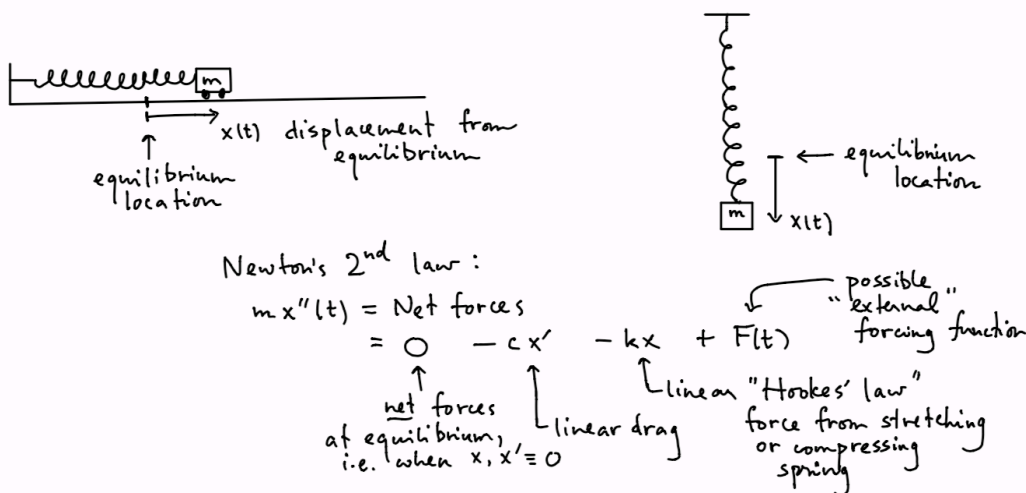 m
x(t) displacement from
equilibrium
equilibrium
location
equilibrium
location
m
x(t)
Newton's 2nd law:
m x"(t) = Net forces
= 0 - c x' - kx + F(t)
possible
"external"
forcing function
net forces
at equilibrium,
i.e. when x, x' ≡ 0
linear drag
linear "Hookes' law"
force from stretching
or compressing
spring